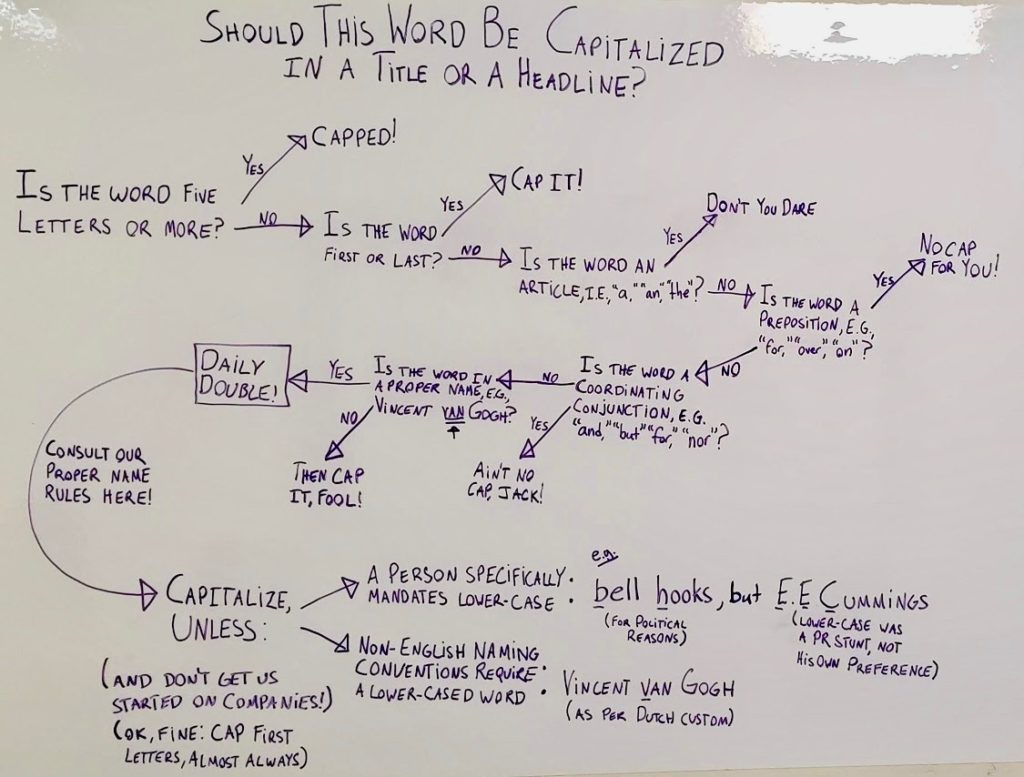 Should This Word Be Capitalized
in a Title or a Headline?
Is the word five
letters or more?
Yes
Capped!
No
Is the word
first or last?
Yes
Cap it!
No
Is the word an
article, i.e., "a," "an," "the"?
Yes
Don't you dare
No
Is the word a
preposition, e.g.,
"for," "over," "on"?
Yes
No cap
for you!
No
Is the word a
coordinating
conjunction, e.g.
"and," "but" "for," "nor"?
Yes
Ain't no
cap, Jack!
No
Is the word in
a proper name, e.g.,
Vincent van Gogh?
No
Then cap
it, fool!
Yes
Daily
Double!
Consult our
proper name
rules here!
Capitalize,
unless:
A person specifically
mandates lower-case
e.g.
bell hooks, but E.E Cummings
(for political
reasons)
(lower-case was
a PR stunt, not
his own preference)
Non-English naming
conventions require
a lower-cased word
Vincent van Gogh
(as per Dutch custom)
(and don't get us
started on companies!)
(OK, fine: cap first
letters, almost always)